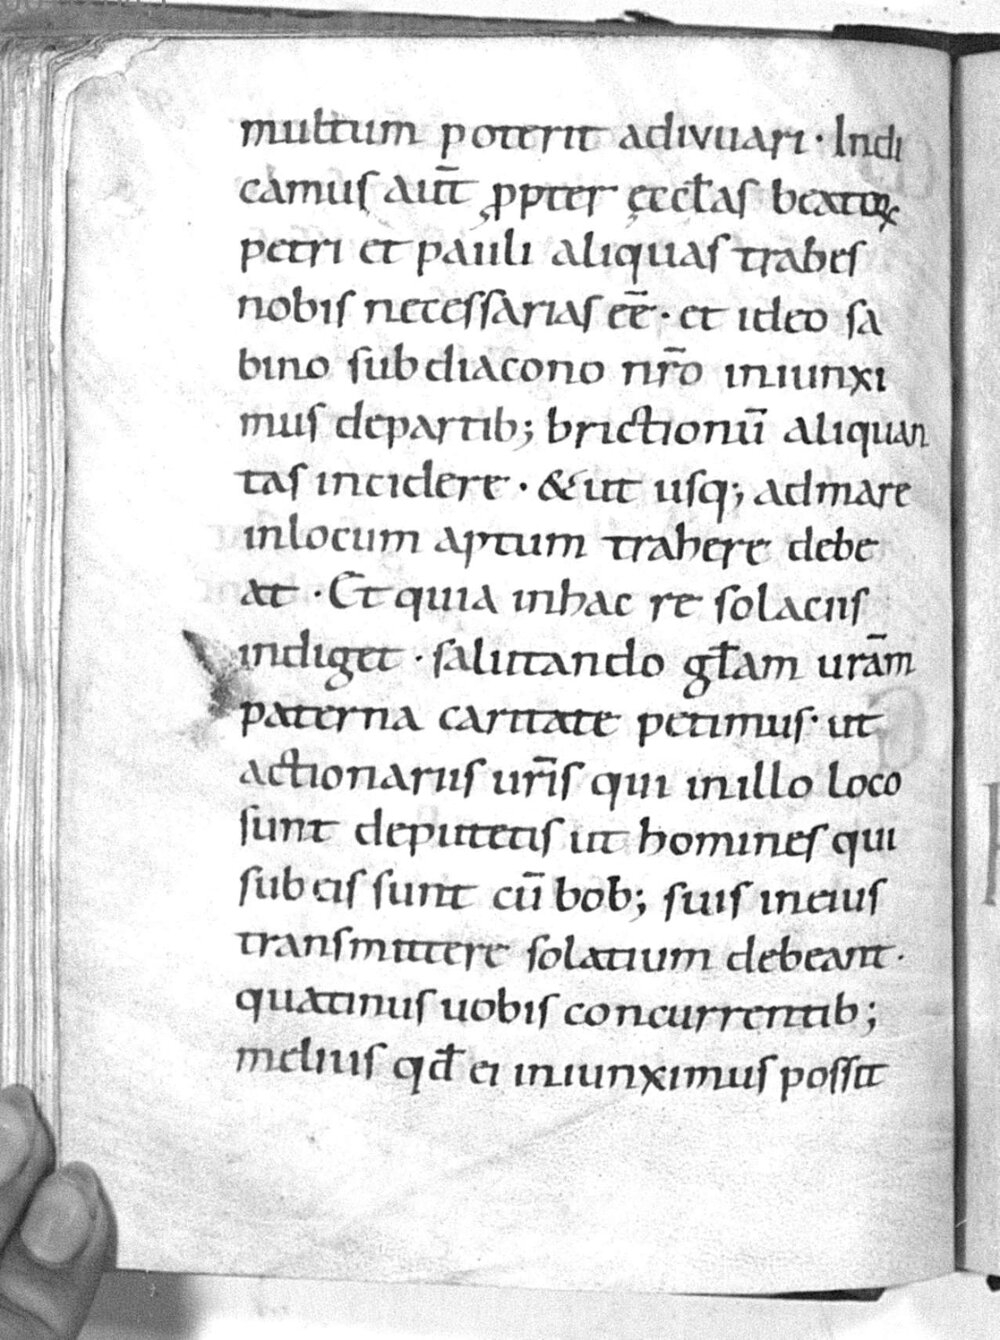 multum poterit adivuari · Indi
camus aut̄ ꝓpter ęcclas̄ beatoꝝ
petri et pauli aliquas trabes
nobis necessarias eē · et ideo sa
bino subdiacono nr̄o iniunxi
mus departib; brictionū aliquan
tas incidere · &ut usq; admare
inlocum aptum trahere debe
at · Et quia inhac re solaciis
indiget · salutando głam urām
paterna caritate petimus · ut
actionariis ur̄is qui inillo loco
sunt deputetis ut homines qui
sub eis sunt cū bob; suis ineius
transmittere solatium debeant ·
quatinus uobis concurrentib;
melius qđ ei iniunximus possit